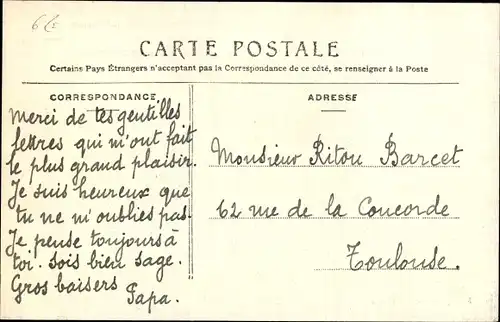 6 f
CARTE POSTALE
Certains Pays Étrangers n'acceptant pas la Correspondance de ce côté, se renseigner à la Poste
CORRESPONDANCE
Merci de tes gentilles
lettres qui m'ont fait
le plus grand plaisir.
Je suis heureux que
tu ne m'oublies pas.
Je pense toujours à
toi. Sois bien sage.
Gros baisers
Papa.
ADRESSE
Monsieur Ritou Barcet
62 rue de la Concorde
Toulouse.